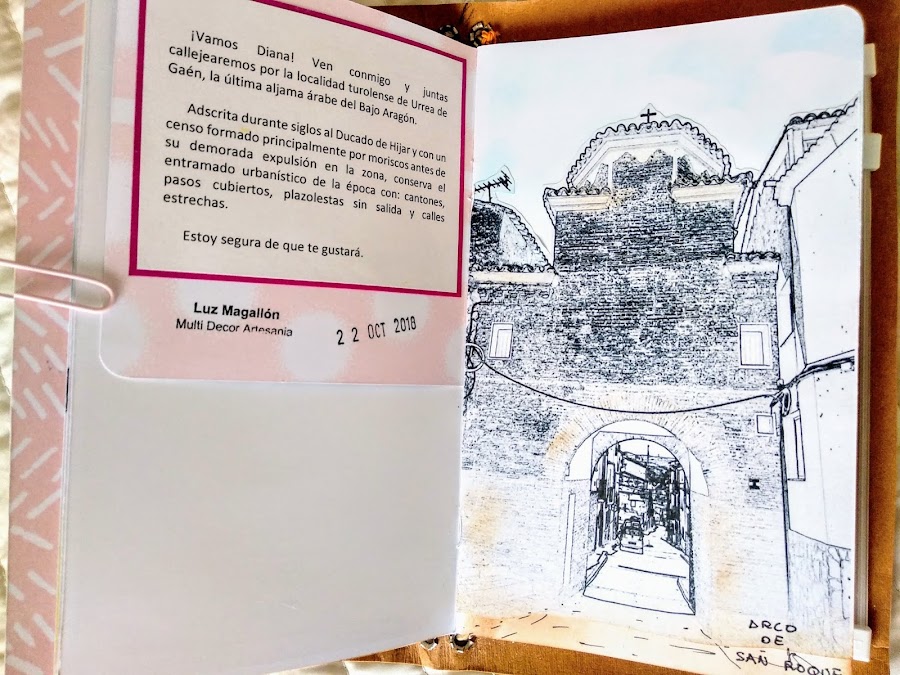 ¡Vamos Diana! Ven conmigo y juntas
callejearemos por la localidad turolense de Urrea de
Gaén, la última aljama árabe del Bajo Aragón.
Adscrita durante siglos al Ducado de Hijar y con un
censo formado principalmente por moriscos antes de
su demorada expulsión en la zona, conserva el
entramado urbanístico de la época con: cantones,
pasos cubiertos, plazolestas sin salida y calles
estrechas.
Estoy segura de que te gustará.
Luz Magallón
Multi Decor Artesania
22 OCT 2018
ARCO
DE
SAÑ ROQUE